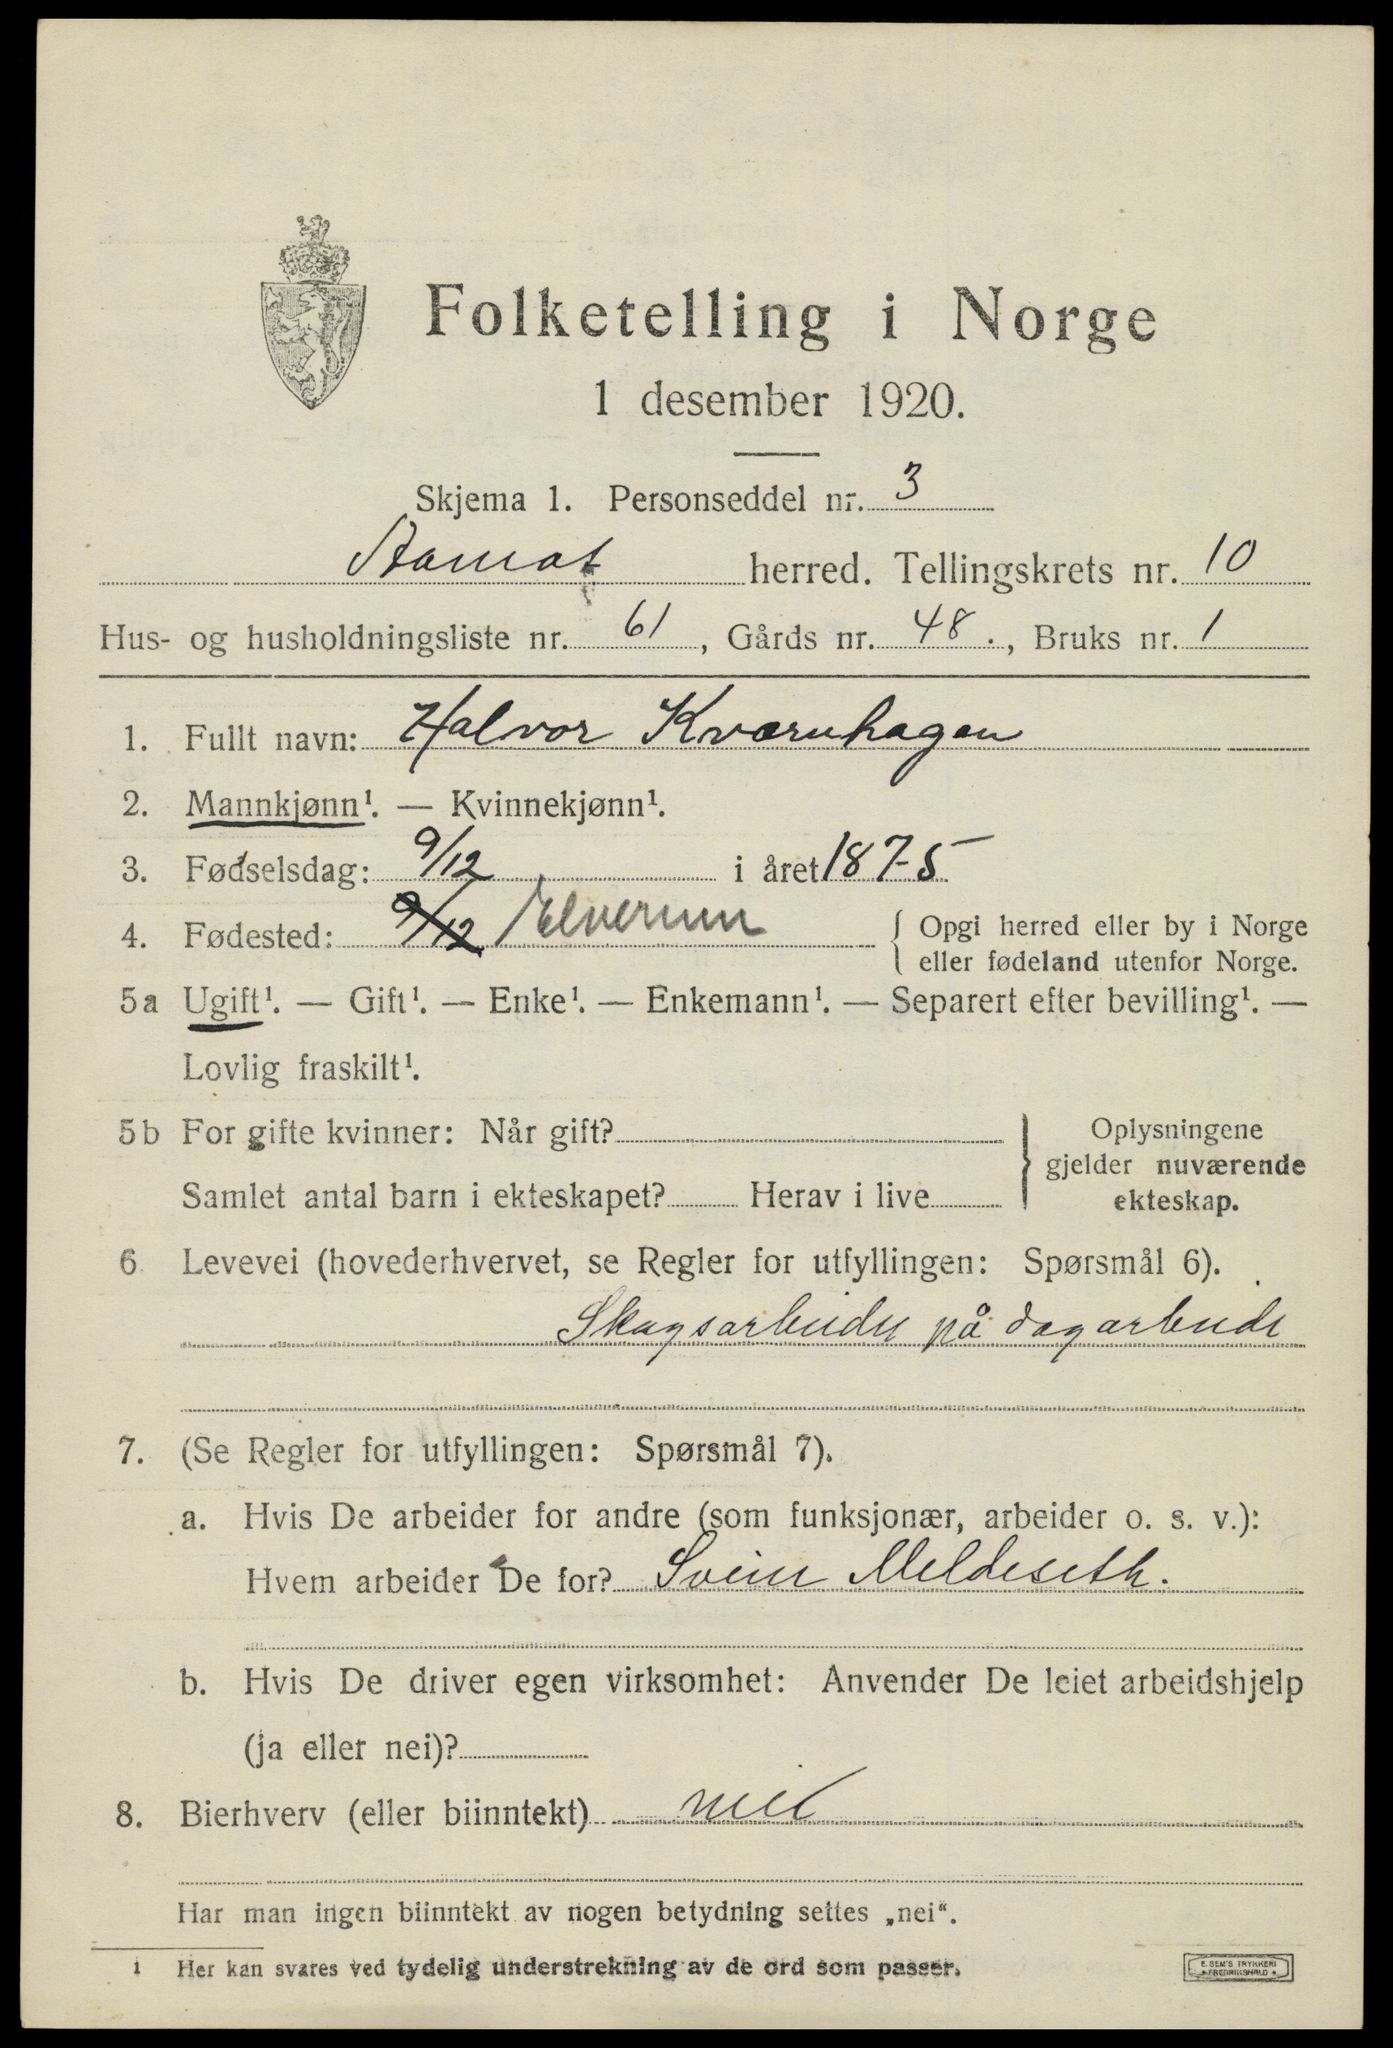 Folketelling i Norge
1 desember 1920.
Skjema 1. Personseddel nr. 3
Aamot herred. Tellingskrets nr. 10
Hus- og husholdningsliste nr. 61, Gårds nr. 48., Bruks nr. 1
1. Fullt navn: Halvor Kværnhagen
2. Mannkjønn¹. — Kvinnekjønn¹.
3. Fødselsdag: 9/12 i året 1875
4. Fødested: 9/12 Elverum { Opgi herred eller by i Norge
eller fødeland utenfor Norge.
5a Ugift¹. — Gift¹. — Enke¹. — Enkemann¹. — Separert efter bevilling¹. —
Lovlig fraskilt¹.
5b For gifte kvinner: Når gift? } Oplysningene
gjelder nuværende
Samlet antal barn i ekteskapet? Herav i live ekteskap.
6 Levevei (hovederhvervet, se Regler for utfyllingen: Spørsmål 6).
Skogsarbeider på dagarbeide
7. (Se Regler for utfyllingen: Spørsmål 7).
a. Hvis De arbeider for andre (som funksjonær, arbeider o. s. v.):
Hvem arbeider De for? Svein Meldeseth.
b. Hvis De driver egen virksomhet: Anvender De leiet arbeidshjelp
(ja eller nei)?
8. Bierhverv (eller biinntekt) nei
Har man ingen biinntekt av nogen betydning settes „nei".
1 Her kan svares ved tydelig understrekning av de ord som passer.
E. SEM'S TRYKKERI
FREDRIKSHALD